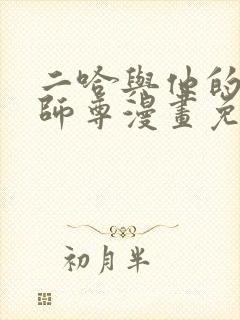 二哈與他的
師尊漫畫免
初月半